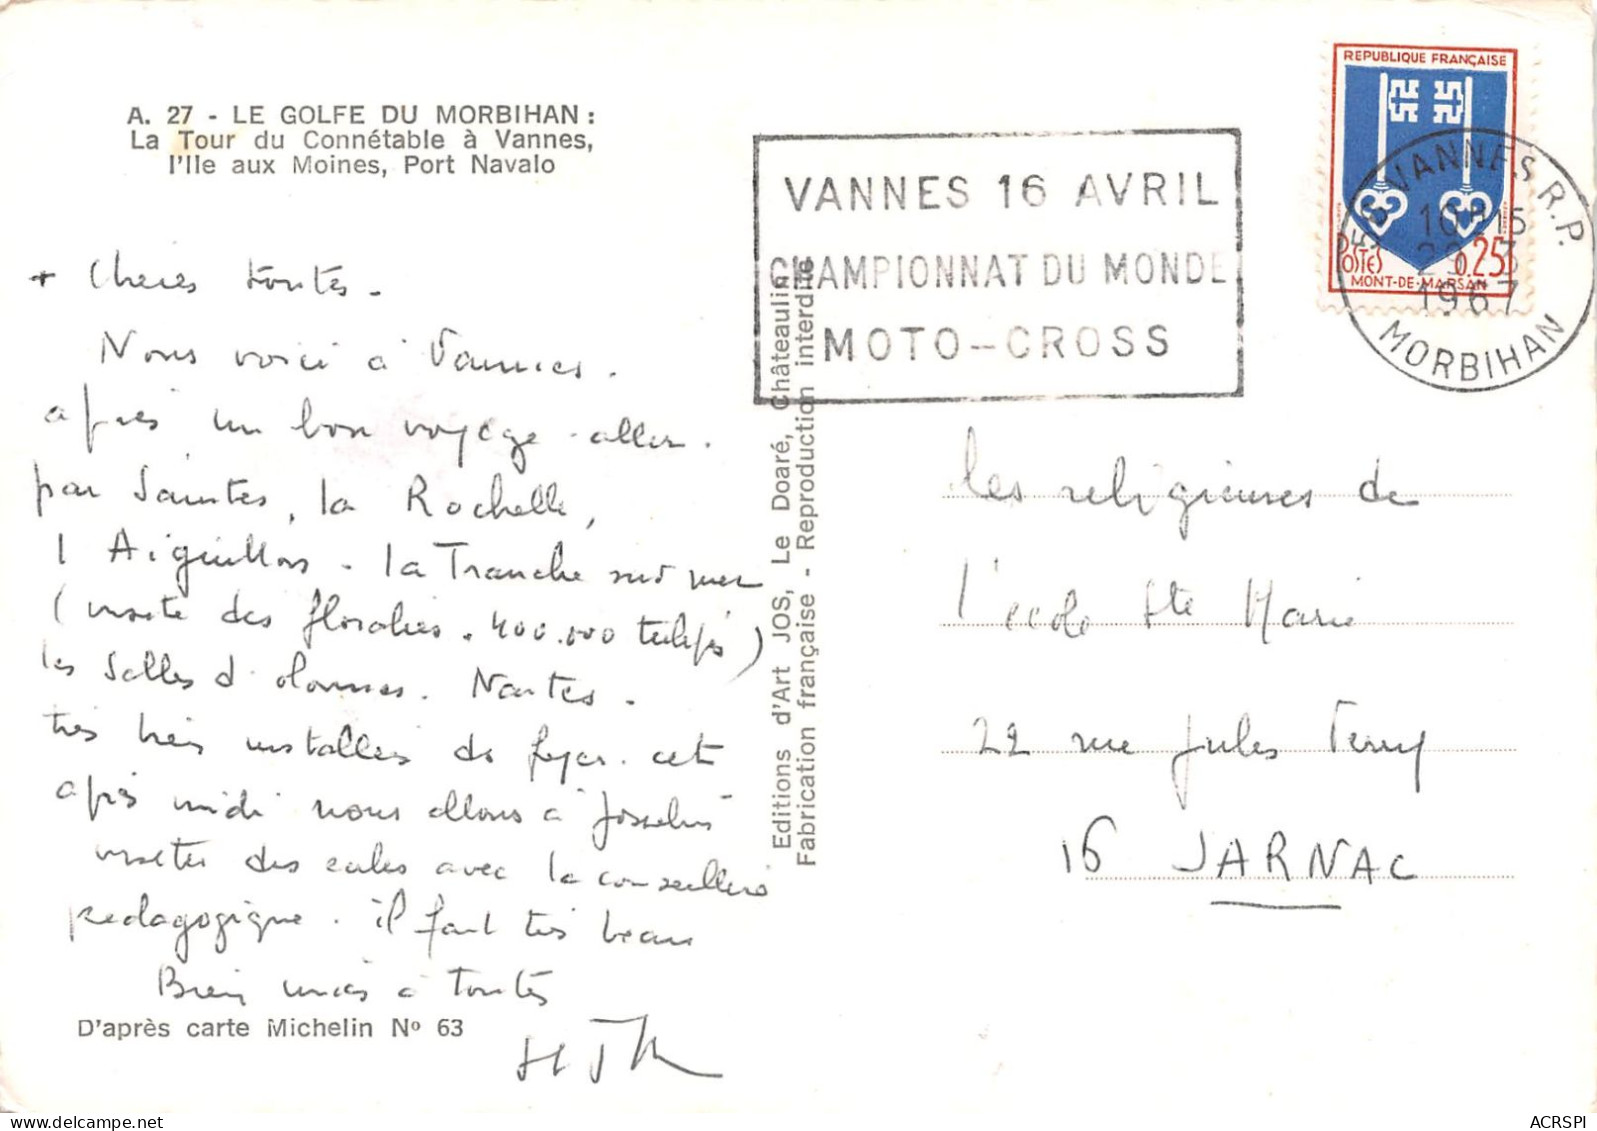 A. 27 - LE GOLFE DU MORBIHAN :
La Tour du Connétable à Vannes,
l'Ile aux Moines, Port Navalo
+ Chères toutes.
Nous voici à Vannes.
après un bon voyage aller.
par Saintes, la Rochelle,
l Aiguillon. la Tranche sur mer
(visite des floralies. 400.000 tulipes)
les Salles d. olonnes. Nantes.
très bien installées de foyer. cet
après midi nous allons à Josselin
visiter des écoles avec la conseillère
pédagogique. il fait très beau
Bien unies à toutes
D'après carte Michelin No 63
Editions d'Art JOS, Le Doaré, Châteaulin
Fabrication française - Reproduction interdite
VANNES 16 AVRIL
CHAMPIONNAT DU MONDE
MOTO-CROSS
REPUBLIQUE FRANÇAISE
POSTES 0,25
MONT-DE-MARSAN
56 VANNES R.P.
16H15
29-3
1967
MORBIHAN
les religieuses de
l'école Ste Marie
22 rue Jules Ferry
16 JARNAC
ACRSPI